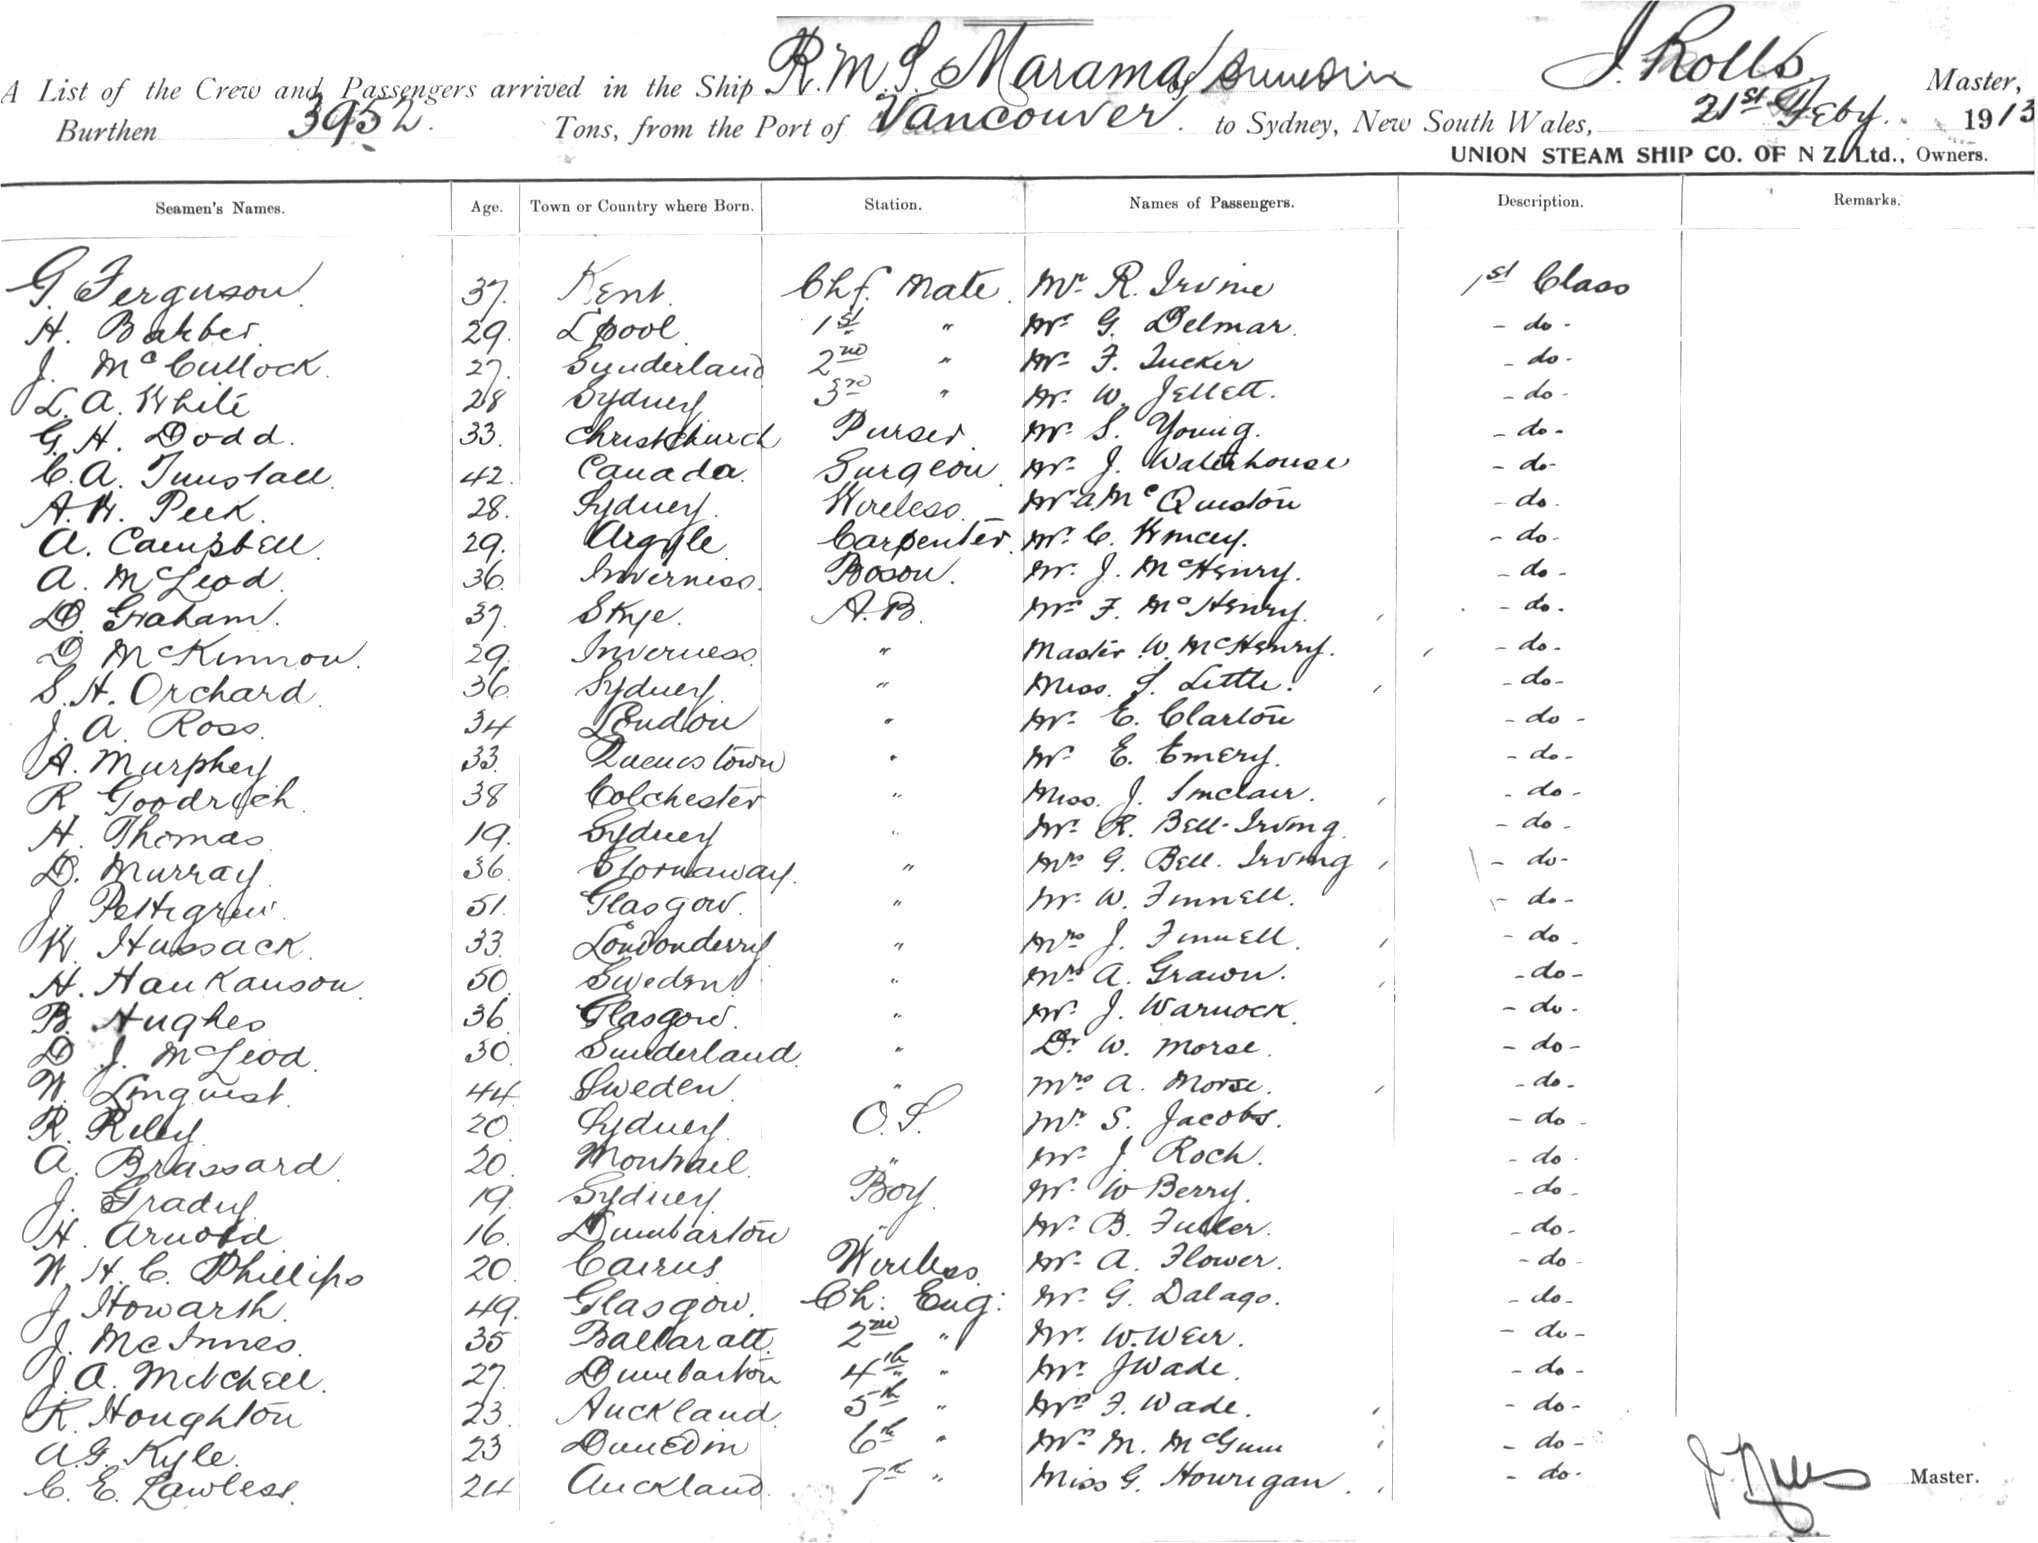 A List of the Crew and Passengers arrived in the Ship R.M.S. Marama of Dunedin J. Rolls Master,
Burthen 3952. Tons, from the Port of Vancouver. to Sydney, New South Wales, 21st Feby. 1913
UNION STEAM SHIP CO. OF N Z. Ltd., Owners.
Seamen's Names. Age. Town or Country where Born. Station. Names of Passengers. Description. Remarks.
G. Ferguson. 37. Kent. Chf. Mate. Mr. R. Irvine 1st Class
H. Barber. 29. L'pool. 1st " Mr. G. Delmar. - do -
J. McCullock. 27. Sunderland 2nd " Mr. F. Tucker - do -
L. A. White 28 Sydney 3rd " Mr. W. Jellett. - do -
G. H. Dodd. 33. Christchurch Purser Mr. S. Young. - do -
C. A. Tunstall. 42. Canada. Surgeon Mr. J. Waterhouse - do -
A. W. Peek. 28. Sydney. Wireless. Mr A. McQuiston - do.
A. Campbell. 29. Argyle Carpenter. Mr. C. Kincey. - do -
A. McLeod. 36. Inverness. Boson. Mr. J. McHenry. - do -
D. Graham. 37. Skye. A.B. Mrs F. McHenry. - do.
D. McKinnon. 29. Inverness " Master W. McHenry. - do -
S. H. Orchard 36. Sydney. " Miss. S. Little. - do -
J. A. Ross. 34 London " Mr. E. Clarton - do -
A. Murphey 33. Queenstown " Mr E. Emery. - do -
R. Goodrich. 38 Colchester " Miss. J. Sinclair. - do -
H. Thomas 19. Sydney " Mr. R. Bell-Irving. - do -
D. Murray. 36. Stornaway. " Mrs G. Bell. Irving - do -
J. Pettigrew. 51. Glasgow. " Mr. W. Finnell. - do -
W. Hussack. 33. Londonderry " Mrs J. Finnell. - do -
H. Hankanson. 50. Sweden " Mrs A. Grawn. - do -
B. Hughes 36. Glasgow. " Mr. J. Warnock. - do -
D. J. McLeod. 30. Sunderland " Dr. W. Morse. - do -
W. Linquist. 44. Sweden. " Mrs A. Morse. - do -
R. Riley. 20. Sydney. O.S. Mr. S. Jacobs. - do -
A. Brassard 20. Montreal. " Mr. J. Roch. - do -
J. Grady. 19. Sydney Boy. Mr. W Berry. - do -
H. Arnold 16. Dumbarton " Mr. B. Fuller. - do -
W. H. C. Phillips 20. Cairns. Wireless. Mr. A. Flower. - do -
J. Howarth. 49. Glasgow. Ch: Eng: Mr. G. Dalago. - do -
J. McInnes. 35 Ballaratt. 2nd " Mr. W. Weir. - do -
J. A. Mitchell. 27. Dumbarton 4th " Mr. J Wade. - do -
R. Houghton 23. Auckland. 5th " Mrs F. Wade. - do -
A. G. Kyle. 23 Dunedin 6th " Mrs M. McGinn - do -
C. E. Lawless. 24 Auckland. 7th " Miss G. Hourigan. - do -
J. Rolls Master.